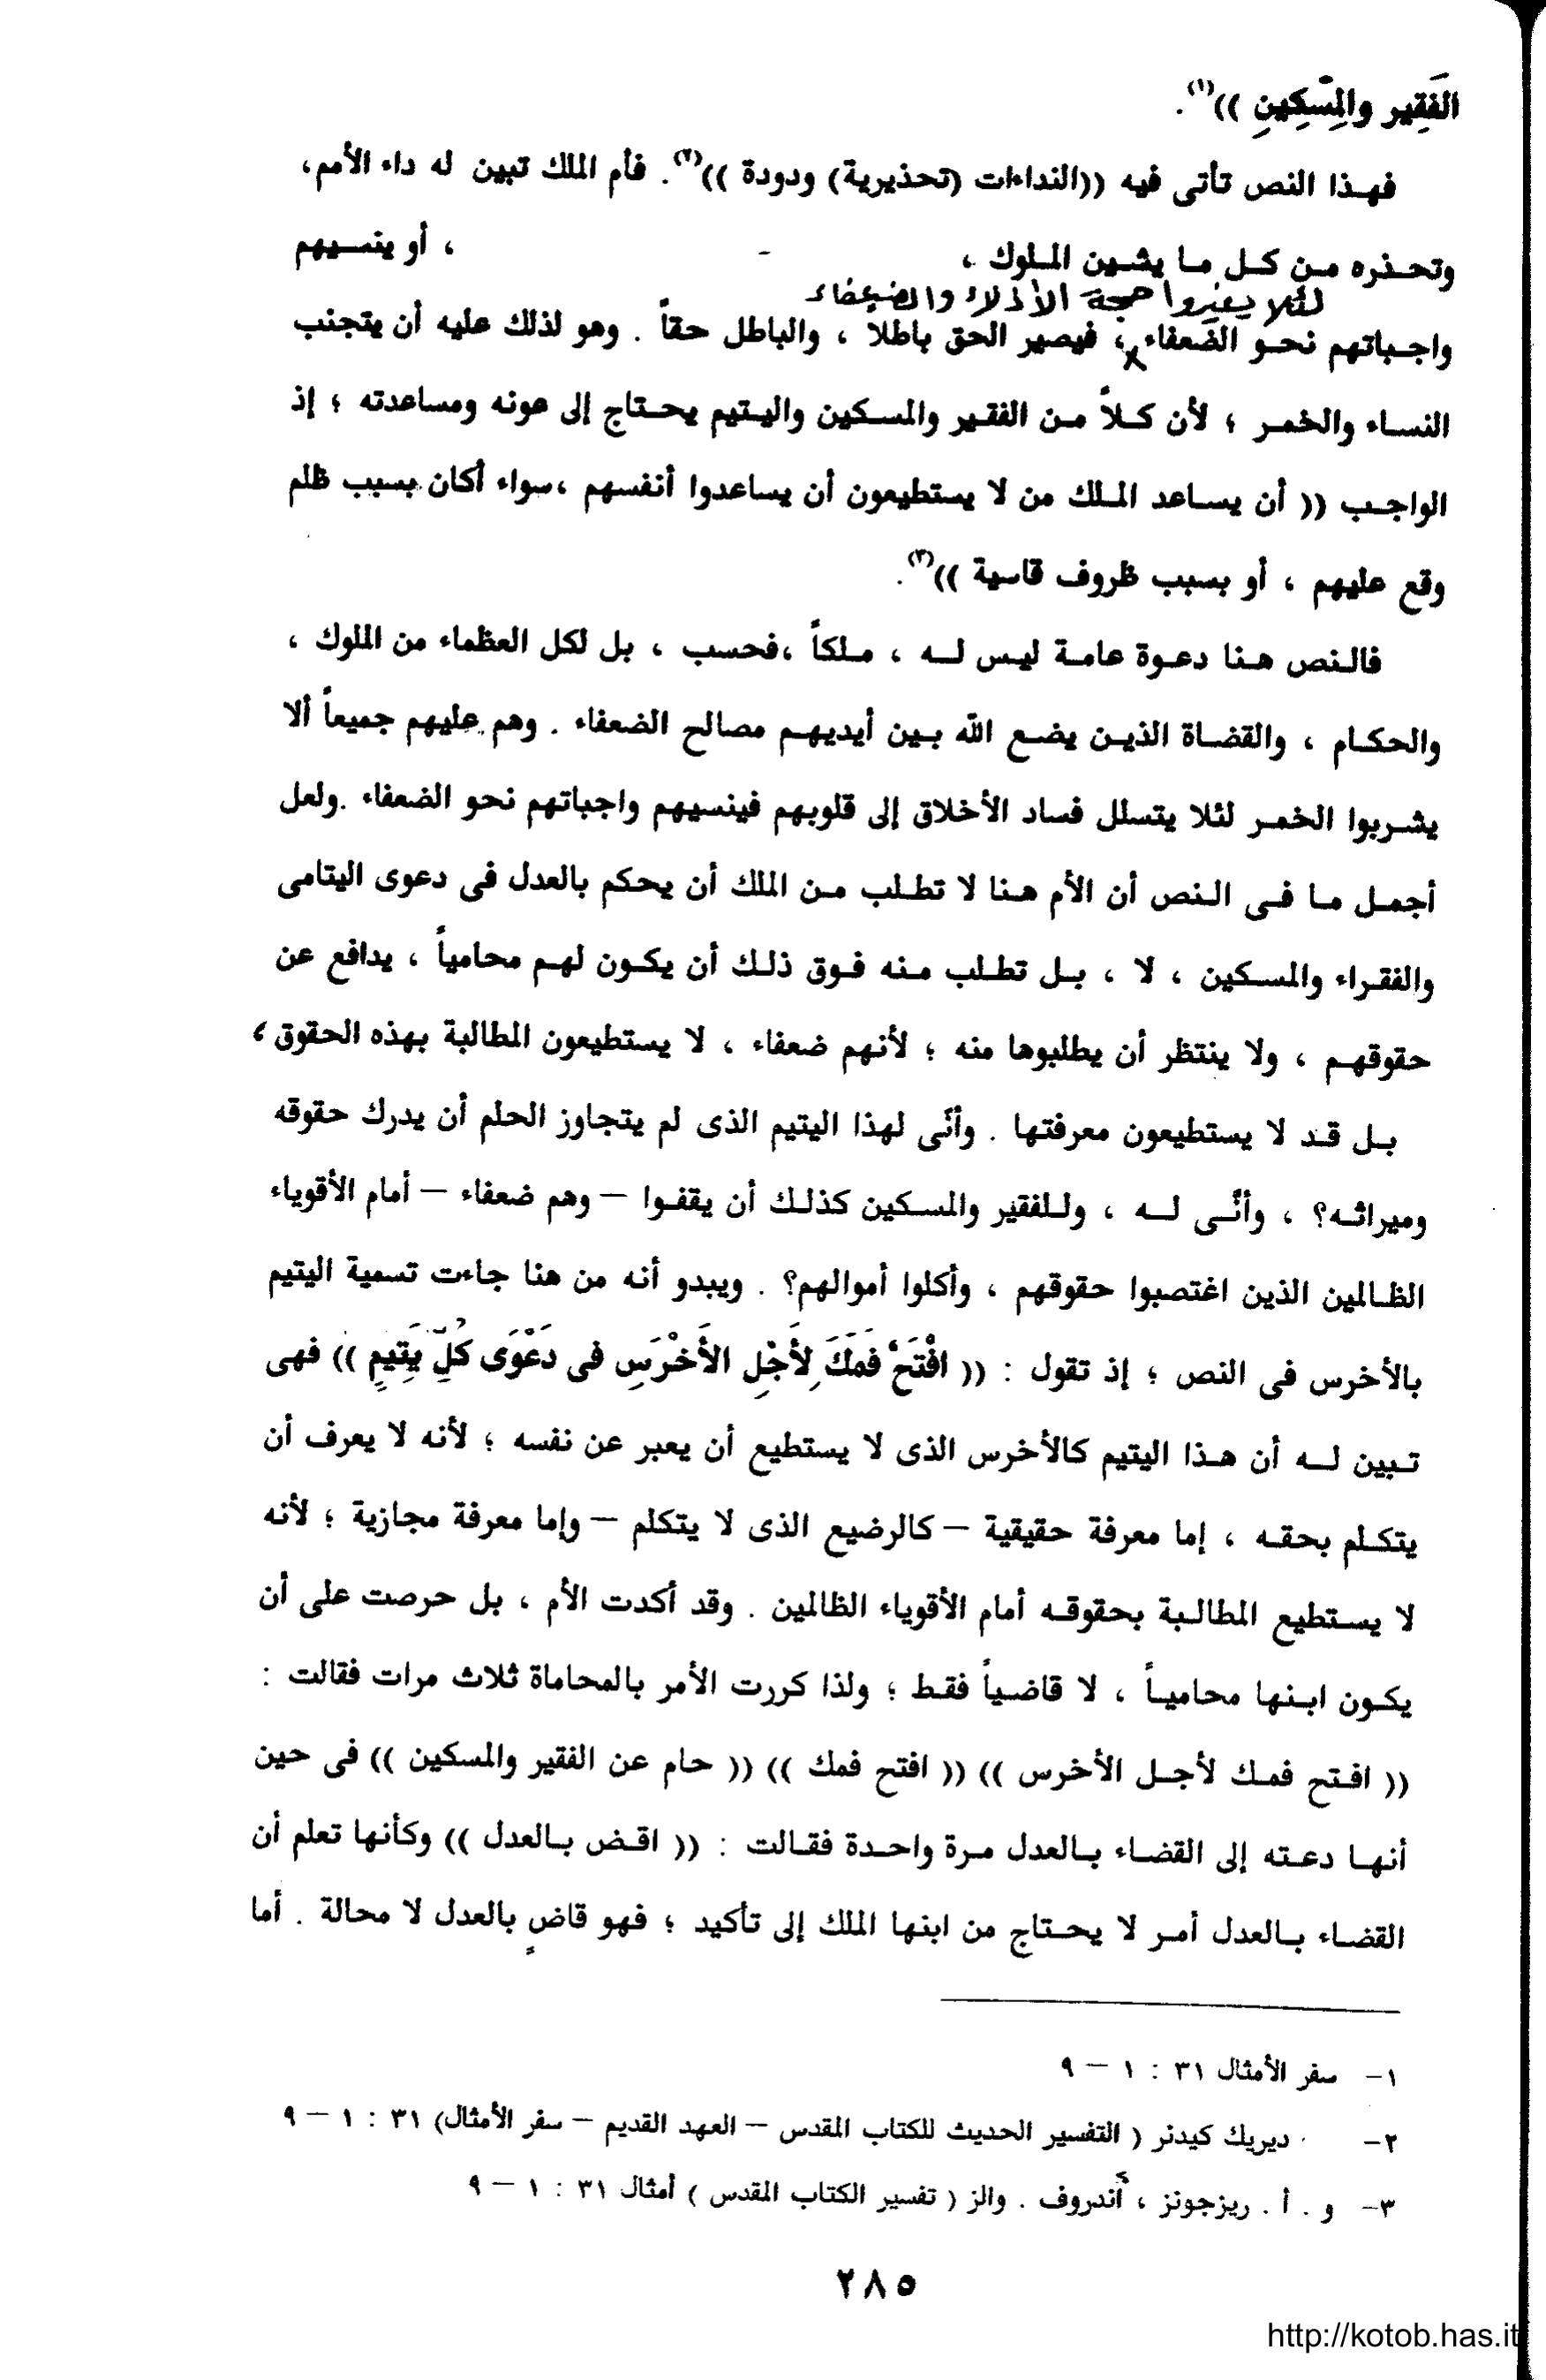 الفَقِير والمِسْكِينِ ))(١).
فهذا النص تأتى فيه ((النداءات (تحذيرية) ودودة ))(٢). فأم الملك تبين له داء الأمم،
وتحذره من كل ما يشين الملوك ، ، أو ينسيهم
لئلا يغيروا حجة الأذلاء والضعفاء
واجباتهم نحو الضعفاء ، فيصير الحق باطلا ، والباطل حقاً . وهو لذلك عليه أن يتجنب
النساء والخمر ؛ لأن كلاً من الفقير والمسكين واليتيم يحتاج إلى عونه ومساعدته ؛ إذ
الواجب (( أن يساعد الملك من لا يستطيعون أن يساعدوا أنفسهم ،سواء أكان بسبب ظلم
وقع عليهم ، أو بسبب ظروف قاسية ))(٣).
فالنص هنا دعوة عامة ليس له ، ملكاً ،فحسب ، بل لكل العظماء من الملوك ،
والحكام ، والقضاة الذين يضع الله بين أيديهم مصالح الضعفاء . وهم عليهم جميعاً ألا
يشربوا الخمر لئلا يتسلل فساد الأخلاق إلى قلوبهم فينسيهم واجباتهم نحو الضعفاء .ولعل
أجمل ما فى النص أن الأم هنا لا تطلب من الملك أن يحكم بالعدل فى دعوى اليتامى
والفقراء والمسكين ، لا ، بل تطلب منه فوق ذلك أن يكون لهم محامياً ، يدافع عن
حقوقهم ، ولا ينتظر أن يطلبوها منه ؛ لأنهم ضعفاء ، لا يستطيعون المطالبة بهذه الحقوق ؛
بل قد لا يستطيعون معرفتها . وأنّى لهذا اليتيم الذى لم يتجاوز الحلم أن يدرك حقوقه
وميراثه؟ ، وأنَّى له ، وللفقير والمسكين كذلك أن يقفوا – وهم ضعفاء – أمام الأقوياء
الظالمين الذين اغتصبوا حقوقهم ، وأكلوا أموالهم؟ . ويبدو أنه من هنا جاءت تسمية اليتيم
بالأخرس فى النص ؛ إذ تقول : (( افْتَحْ فَمَكَ لأَجْلِ الأَخْرَسِ فى دَعْوَى كُلِّ يَتِيمٍ )) فهى
تبين له أن هذا اليتيم كالأخرس الذى لا يستطيع أن يعبر عن نفسه ؛ لأنه لا يعرف أن
يتكلم بحقه ، إما معرفة حقيقية – كالرضيع الذى لا يتكلم – وإما معرفة مجازية ؛ لأنه
لا يستطيع المطالبة بحقوقه أمام الأقوياء الظالمين . وقد أكدت الأم ، بل حرصت على أن
يكون ابنها محامياً ، لا قاضياً فقط ؛ ولذا كررت الأمر بالمحاماة ثلاث مرات فقالت :
(( افتح فمك لأجل الأخرس )) (( افتح فمك )) (( حام عن الفقير والمسكين )) فى حين
أنها دعته إلى القضاء بالعدل مرة واحدة فقالت : (( اقض بالعدل )) وكأنها تعلم أن
القضاء بالعدل أمر لا يحتاج من ابنها الملك إلى تأكيد ؛ فهو قاضٍ بالعدل لا محالة . أما
١– سفر الأمثال ٣١ : ١ – ٩
٢– ديريك كيدنر ( التفسير الحديث للكتاب المقدس – العهد القديم – سفر الأمثال) ٣١ : ١ – ٩
٣– و . أ . ريزجونز ، أندروف . والز ( تفسير الكتاب المقدس ) أمثال ٣١ : ١ – ٩
٢٨٥
http://kotob.has.it